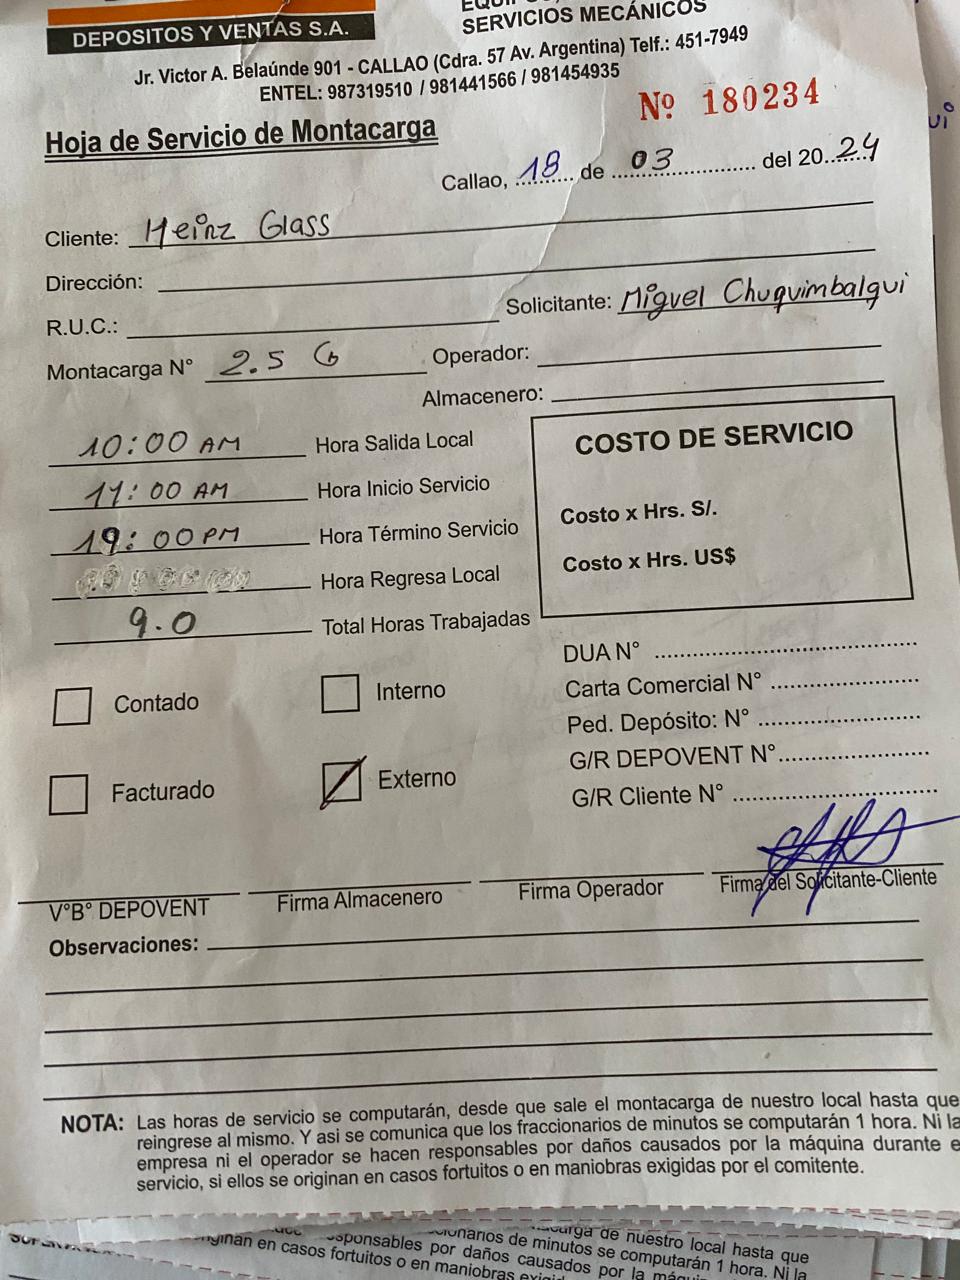 DEPOSITOS Y VENTAS S.A.
SERVICIOS MECÁNICOS
Jr. Victor A. Belaúnde 901 - CALLAO (Cdra. 57 Av. Argentina) Telf.: 451-7949
ENTEL: 987319510 / 981441566 / 981454935
Nº 180234
Hoja de Servicio de Montacarga
Callao, 18 de 03 del 20 24
Cliente: Heinz Glass
Dirección:
R.U.C.:
Solicitante: Miguel Chuquimbalqui
Montacarga N° 2.5
Operador:
Almacenero:
10:00 AM Hora Salida Local
11:00 AM Hora Inicio Servicio
19:00 PM Hora Término Servicio
Hora Regresa Local
9.0 Total Horas Trabajadas
COSTO DE SERVICIO
Costo x Hrs. S/.
Costo x Hrs. US$
Contado
Interno
Facturado
Externo
DUA N°
Carta Comercial N°
Ped. Depósito: N°
G/R DEPOVENT N°
G/R Cliente N°
V°B° DEPOVENT
Firma Almacenero
Firma Operador
Firma del Solicitante-Cliente
Observaciones:
NOTA: Las horas de servicio se computarán, desde que sale el montacarga de nuestro local hasta que
reingrese al mismo. Y asi se comunica que los fraccionarios de minutos se computarán 1 hora. Ni la
empresa ni el operador se hacen responsables por daños causados por la máquina durante e
servicio, si ellos se originan en casos fortuitos o en maniobras exigidas por el comitente.
de nuestro local hasta que
de minutos se computarán 1 hora. Ni la
responsables por daños causados por la
originan en casos fortuitos o en maniobras